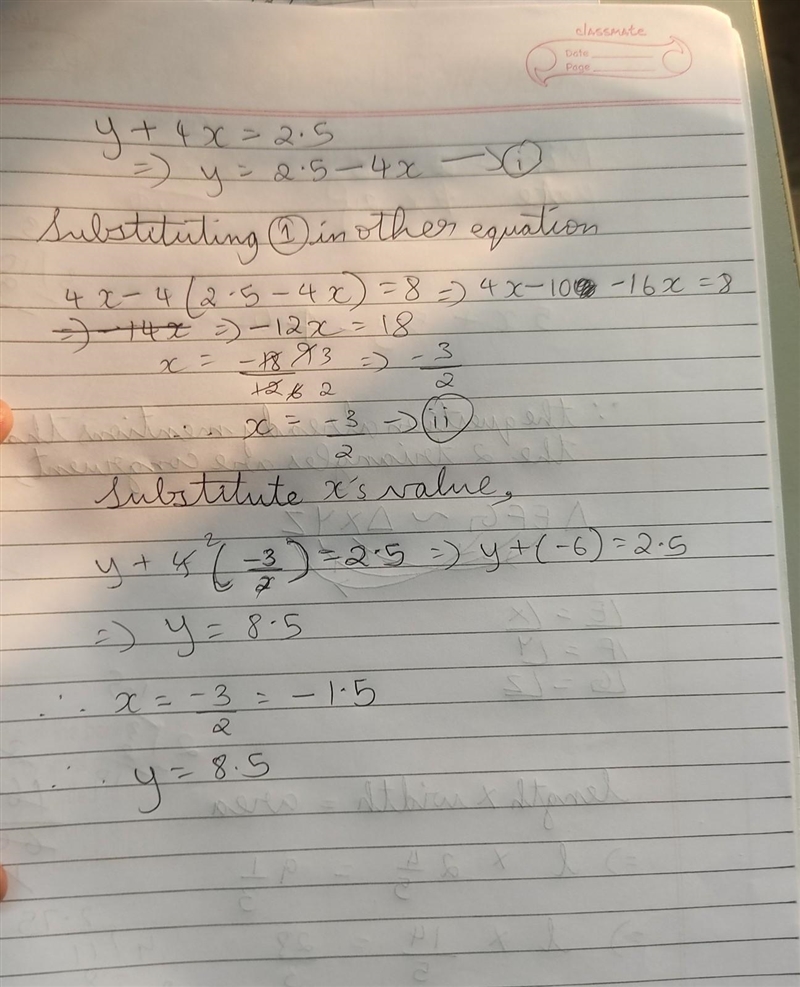 classmate
Date
Page
y + 4x = 2.5
=> y = 2.5 - 4x —> (i)
Substituting (1) in other equation
4x - 4(2.5 - 4x) = 8 => 4x - 10 - 16x = 8
=> -14x => -12x = 18
x = -18 9 3 / 12 6 2 => -3/2
x = -3/2 —> (ii)
Substitute x's value,
y + 4 2 (-3/2) = 2.5 => y + (-6) = 2.5
=> y = 8.5
∴ x = -3/2 = -1.5
∴ y = 8.5
length x width = area
=> l x 2 4/5 = 9 1/3